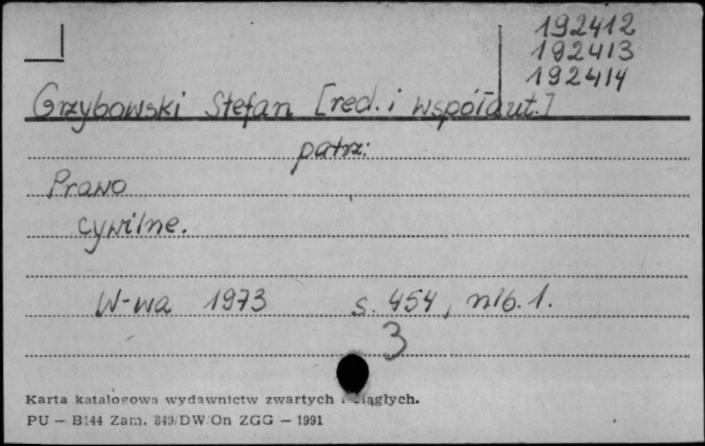 192412
192413
192414
Grzybowski Stefan [red. i współaut.]
patrz:
Prawo
cywilne.
W-wa 1973 s. 454, nlb. 1.
3
Karta katalogowa wydawnictw zwartych i ciągłych.
PU — B144 Zam. 849/DW/On ZGG — 1991